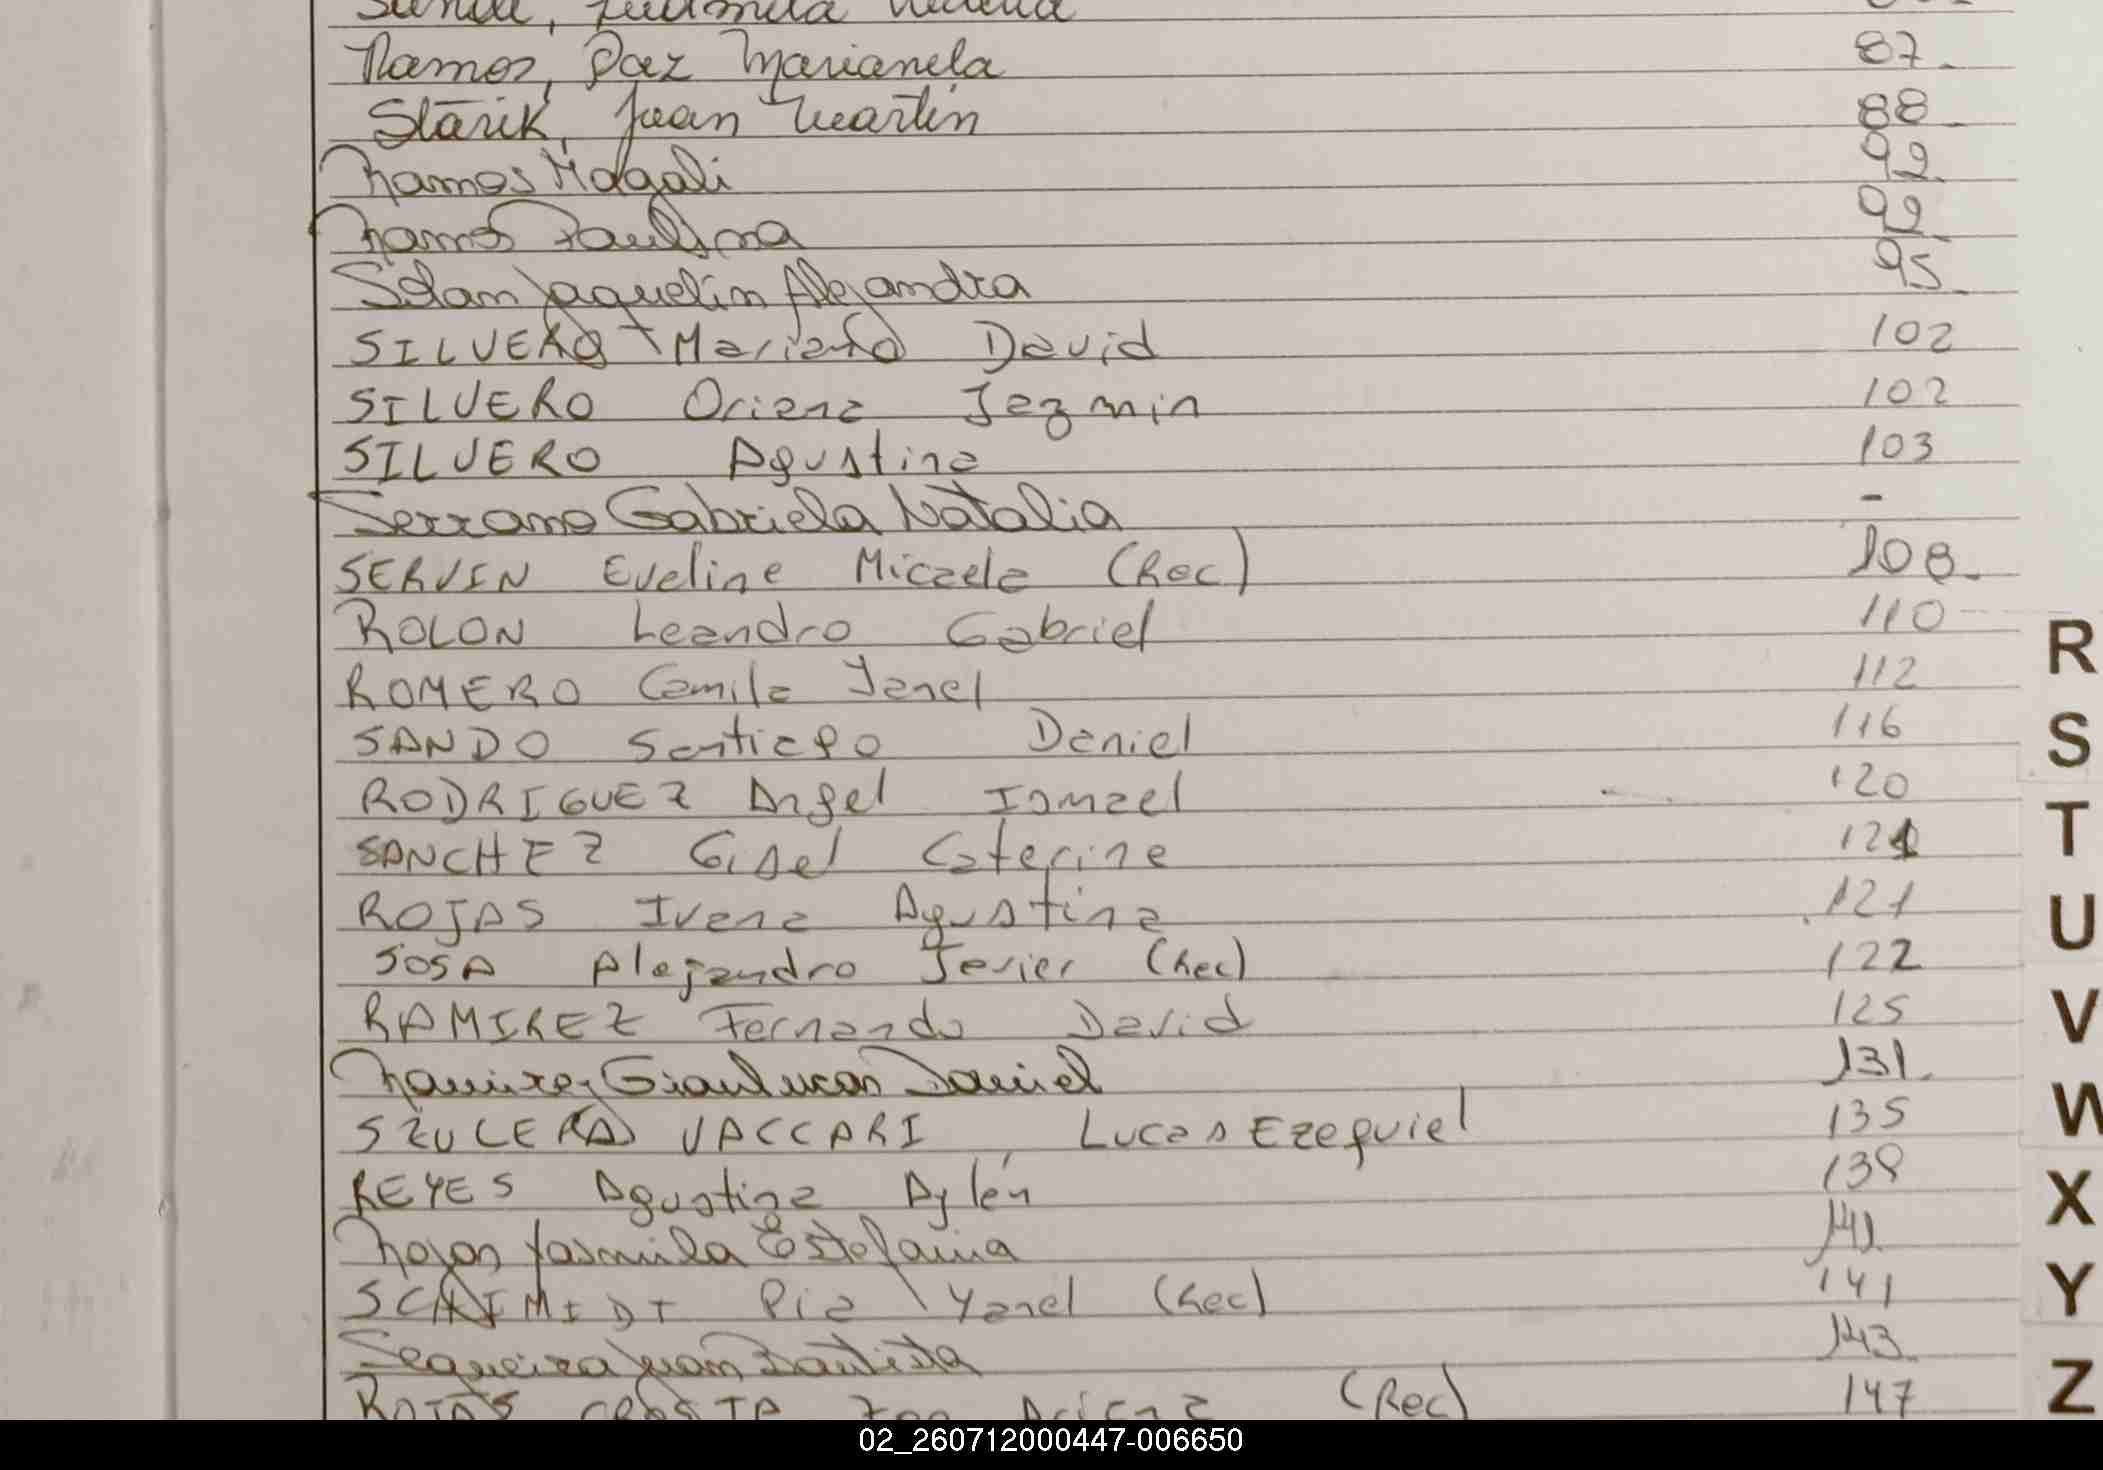 Ludmila
Ramos, Paz Marianela 87
Starik, Juan Martin 88
Ramos Magali 92
Ramos Paulina 92
Solam Jaquelin Alejandra 95
SILVERO Mariano David 102
SILVERO Oriana Jazmin 102
SILVERO Agustina 103
Serrano Gabriela Natalia -
SERVIN Evelina Micaela (Rec) 108
ROLON Leandro Gabriel 110
R
ROMERO Camila Janel 112
SANDO Santiago Daniel 116
S
RODRIGUEZ Angel Ismael 120
T
SANCHEZ Gisel Caterine 121
ROJAS Ivana Agustina 121
U
SOSA Alejandro Javier (Rec) 122
RAMIREZ Fernando David 125
V
Ramirez Gianlucas Daniel 131
SZULEPA VACCARI, Lucas Ezequiel 135
W
REYES Agustina Aylén 138
X
Rojas Yasmila Estefania 141
SCHIMIDT Pia Yanel (Rec) 141
Y
Sequeira Juan Bautista 143
ROJAS COSTA Ariana (Rec) 147
Z
02_260712000447-006650